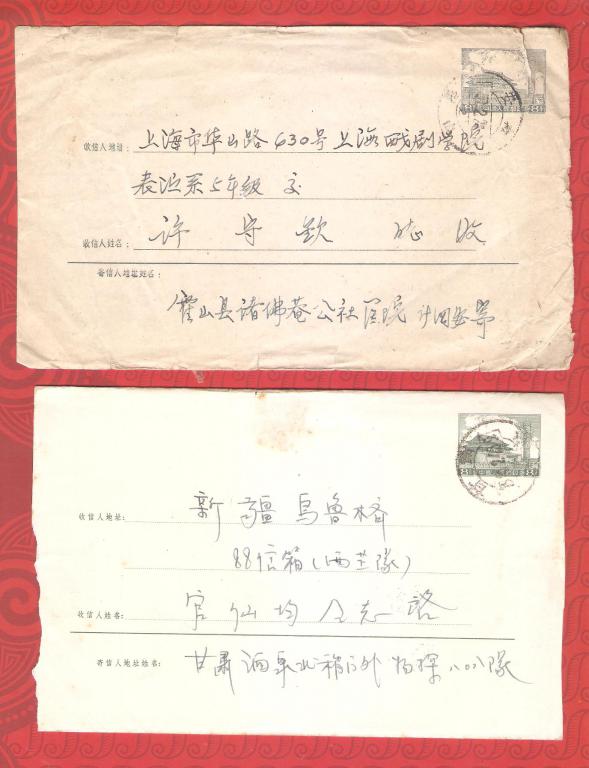 收信人地址: 上海市华山路630号上海戏剧学院
表演系5年级 交
收信人姓名: 许守钦 收
寄信人地址姓名:
霍山县诸佛菴公社医院
收信人地址: 新疆乌鲁木齐
88信箱(西芷隊)
收信人姓名: 官仙均同志
寄信人地址姓名: 甘肃酒泉北稍门外物探八〇八隊